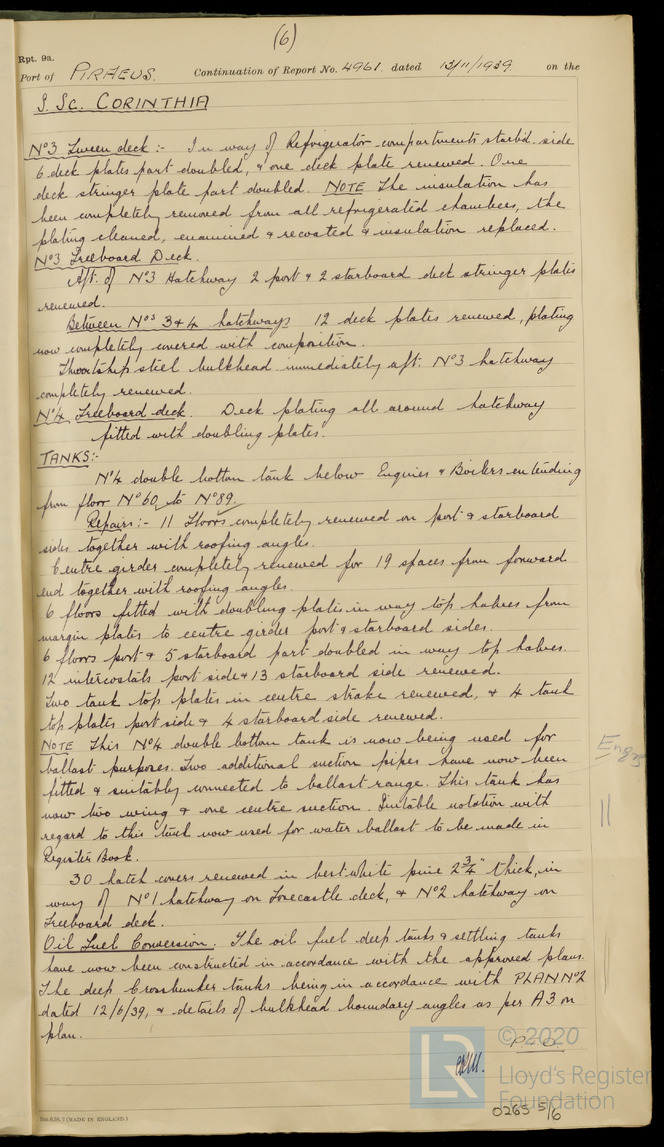 (6)
Rpt. 9a.
Port of PIRAEUS. Continuation of Report No. 4961. dated 13/11/1939. on the
S. Sc. CORINTHIA
No3 Tween deck :- In way of Refrigerator compartments starbd. side
6 deck plates part doubled, & one deck plate renewed. One
deck stringer plate part doubled. NOTE The insulation has
been completely removed from all refrigerated chambers, the
plating cleaned, examined & recoated & insulation replaced.
No3 Freeboard Deck.
Aft. of No3 Hatchway 2 port & 2 starboard deck stringer plates
renewed.
Between Nos 3 & 4 hatchways 12 deck plates renewed, plating
now completely covered with composition.
Thwartship steel bulkhead immediately aft. No3 hatchway
completely renewed.
No4 Freeboard deck. Deck plating all around hatchway
fitted with doubling plates.
TANKS:-
No4 double bottom tank below Engines & Boilers extending
from floor No60 to No89.
Repairs:- 11 Floors completely renewed on port & starboard
sides together with roofing angles.
Centre girder completely renewed for 19 spaces from forward
end together with roofing angles.
6 floors fitted with doubling plates in way top halves from
margin plates to centre girder port & starboard sides.
6 floors port & 5 starboard part doubled in way top halves.
12 intercostals port side & 13 starboard side renewed.
Two tank top plates in centre strake renewed, & 4 tank
top plates port side & 4 starboard side renewed.
NOTE This No4 double bottom tank is now being used for
ballast purposes. Two additional suction pipes have now been
fitted & suitably connected to ballast range. This tank has
now two wing & one centre suction. Suitable notation with
regard to this tank now used for water ballast to be made in
Register Book.
30 hatch covers renewed in best white pine 2¾" thick, in
way of No1 hatchway on Forecastle deck, & No2 hatchway on
Freeboard deck.
Oil Fuel Conversion. The oil fuel deep tanks & settling tanks
have now been constructed in accordance with the approved plans.
The deep Crossbunker tanks being in accordance with PLAN No2
dated 12/6/39, & details of bulkhead boundary angles as per A3 on
plan.
P.T.O.
Engs
LR
© 2020
Lloyd's Register
Foundation
0265 5/6
(MADE IN ENGLAND.)